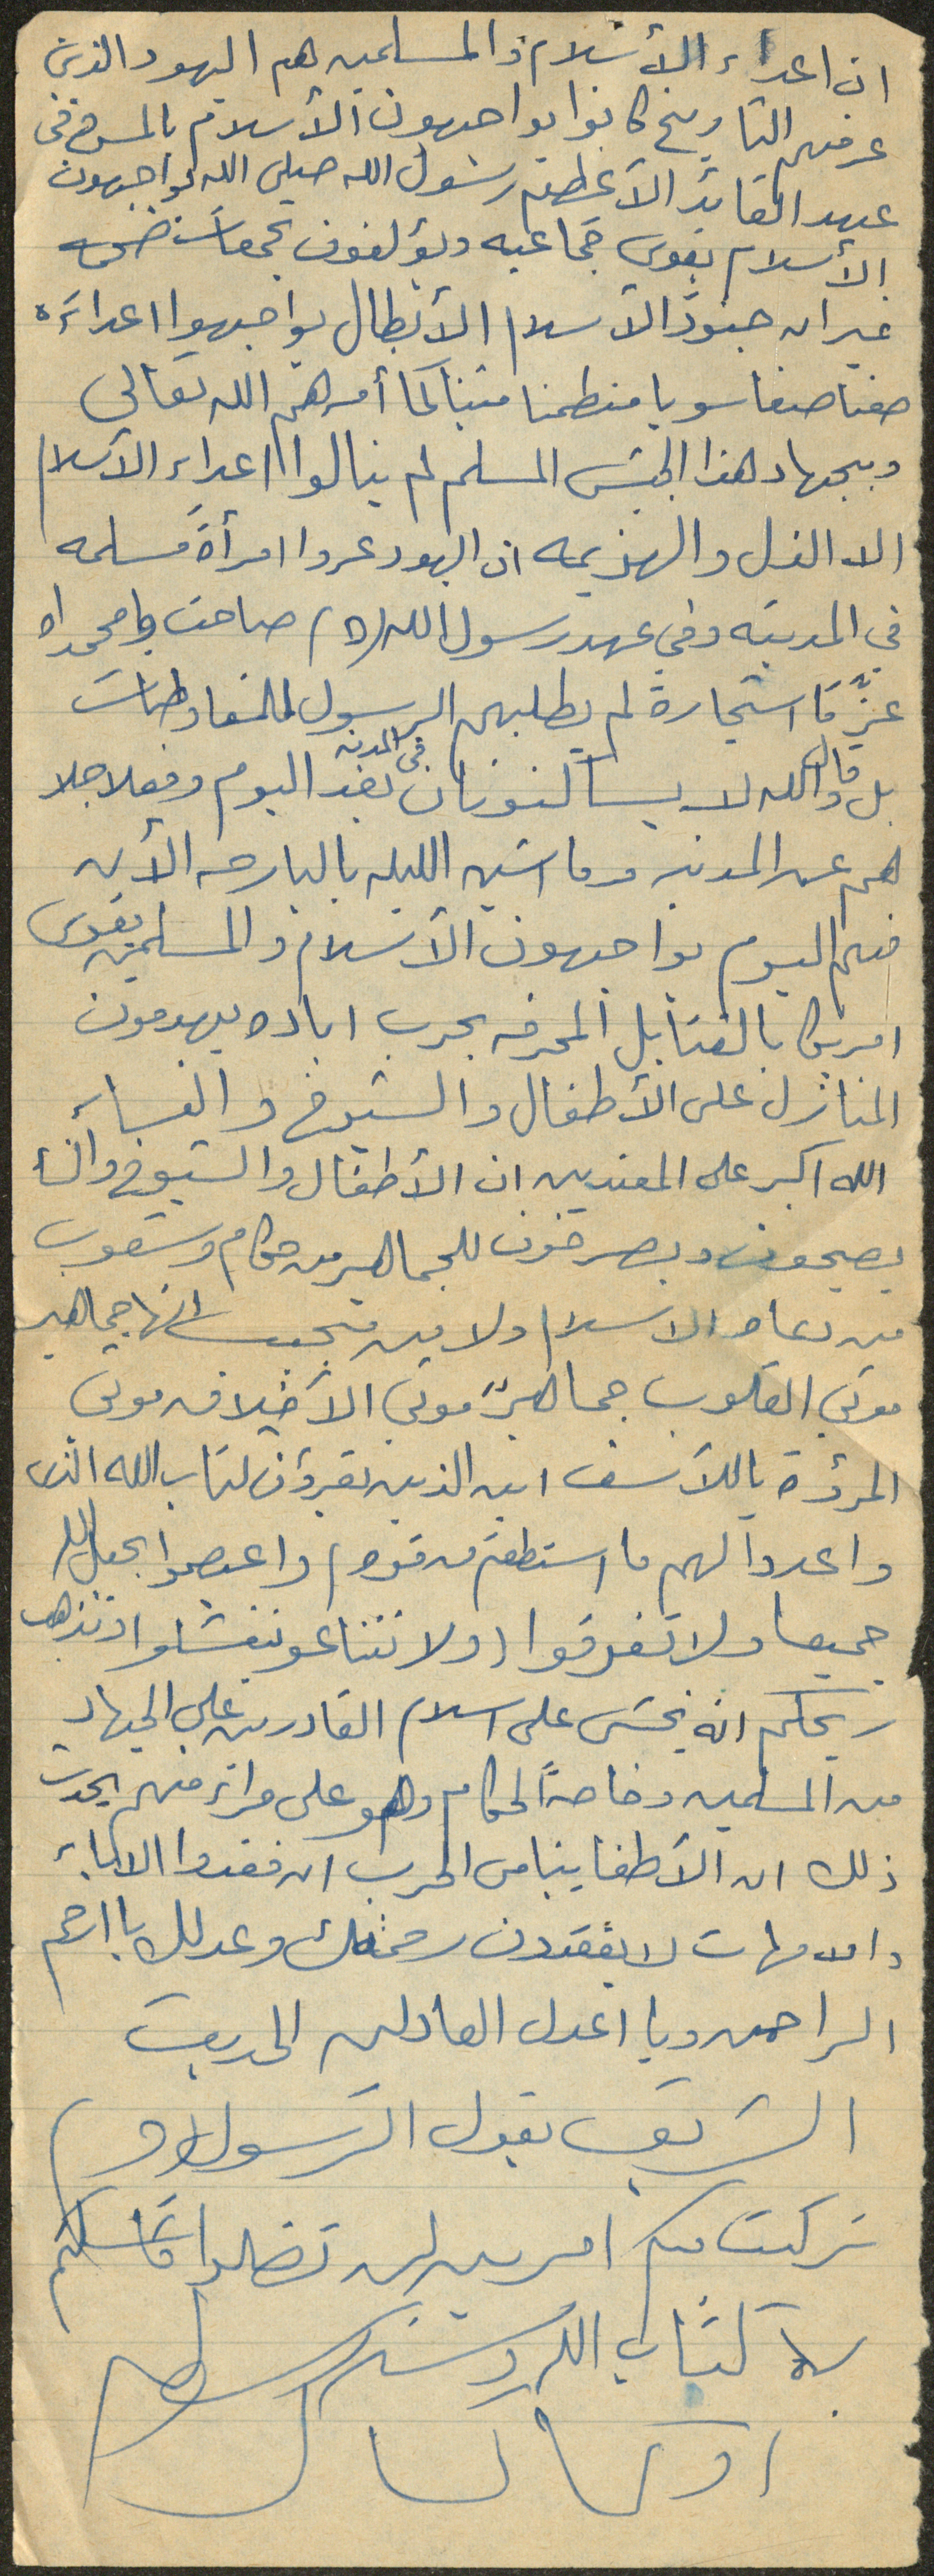 ان اعداء الأسلام والمسلمين هم اليهود الذين
عرفهم التاريخ كانوا يواجهون الأسلام بالمس في
عهد القائد الأعظم رسول الله صلى الله يواجهون
الأسلام بقوى جماعيه ويؤلفون تجمعات ضخمه
غير ان جنود الأسلام الأبطال يواجهوا اعداءه
صفا صفا سويا منظما متينا كما أمرهم الله تعالى
وبجهاد هذا الجيش المسلم لم ينالوا اعداء الأسلام
الا الذل والهزيمه ان اليهود عروا امرأة مسلمه
في المدينه وفي عهد رسول الله (ص) صاحت وا محمداه
لم يطلبهم الرسول للمفاوضات
بل قال والله لا يساكنونا في المدينه بعد اليوم وفعلا جلا
هم عن المدينه وما اشبه الليله بالبارحه الأن
فهم اليوم يواجهون الأسلام والمسلمين بقوى
امريكا بالقنابل المحرقه بحرب اباده يهدمون
المنازل على الأطفال والشيوخ والنساء
الله اكبر على المعتديين ان الأطفال والشيوخ والنساء
يصيحون ويصرخون للجماهير من حكام وشعوب
من دعاه الاسلام ولا من مجيب انها جماهير
موتى القلوب جماهير موتى الأخلاق موتى
المرؤة ياللأسف اين الذين يقرؤن كتاب الله الذى
واعدوا لهم ما استطعتم من قوه واعتصموا بحبل الله
جميعا ولا تفرقوا ولا تتنازعو فتفشلوا وتذهب
ريحكم انه يخشى على اسلام القادرين على الجهاد
من المسلمين وخاصةً الحكام وهو على مراء منهم يحدث
ذلك ان الأطفا يتامى الحرب ان فقدوا الاباء
والامهات لا يفقدون رحمتك وعدلك يا ارحم
الراحمين ويا اعدل العادلين الحديث
الشريف يقول الرسول (ص)
تركت فيكم امرين لن تضلوا ما تمسكتم
بهما كتاب الله وسنة رسوله